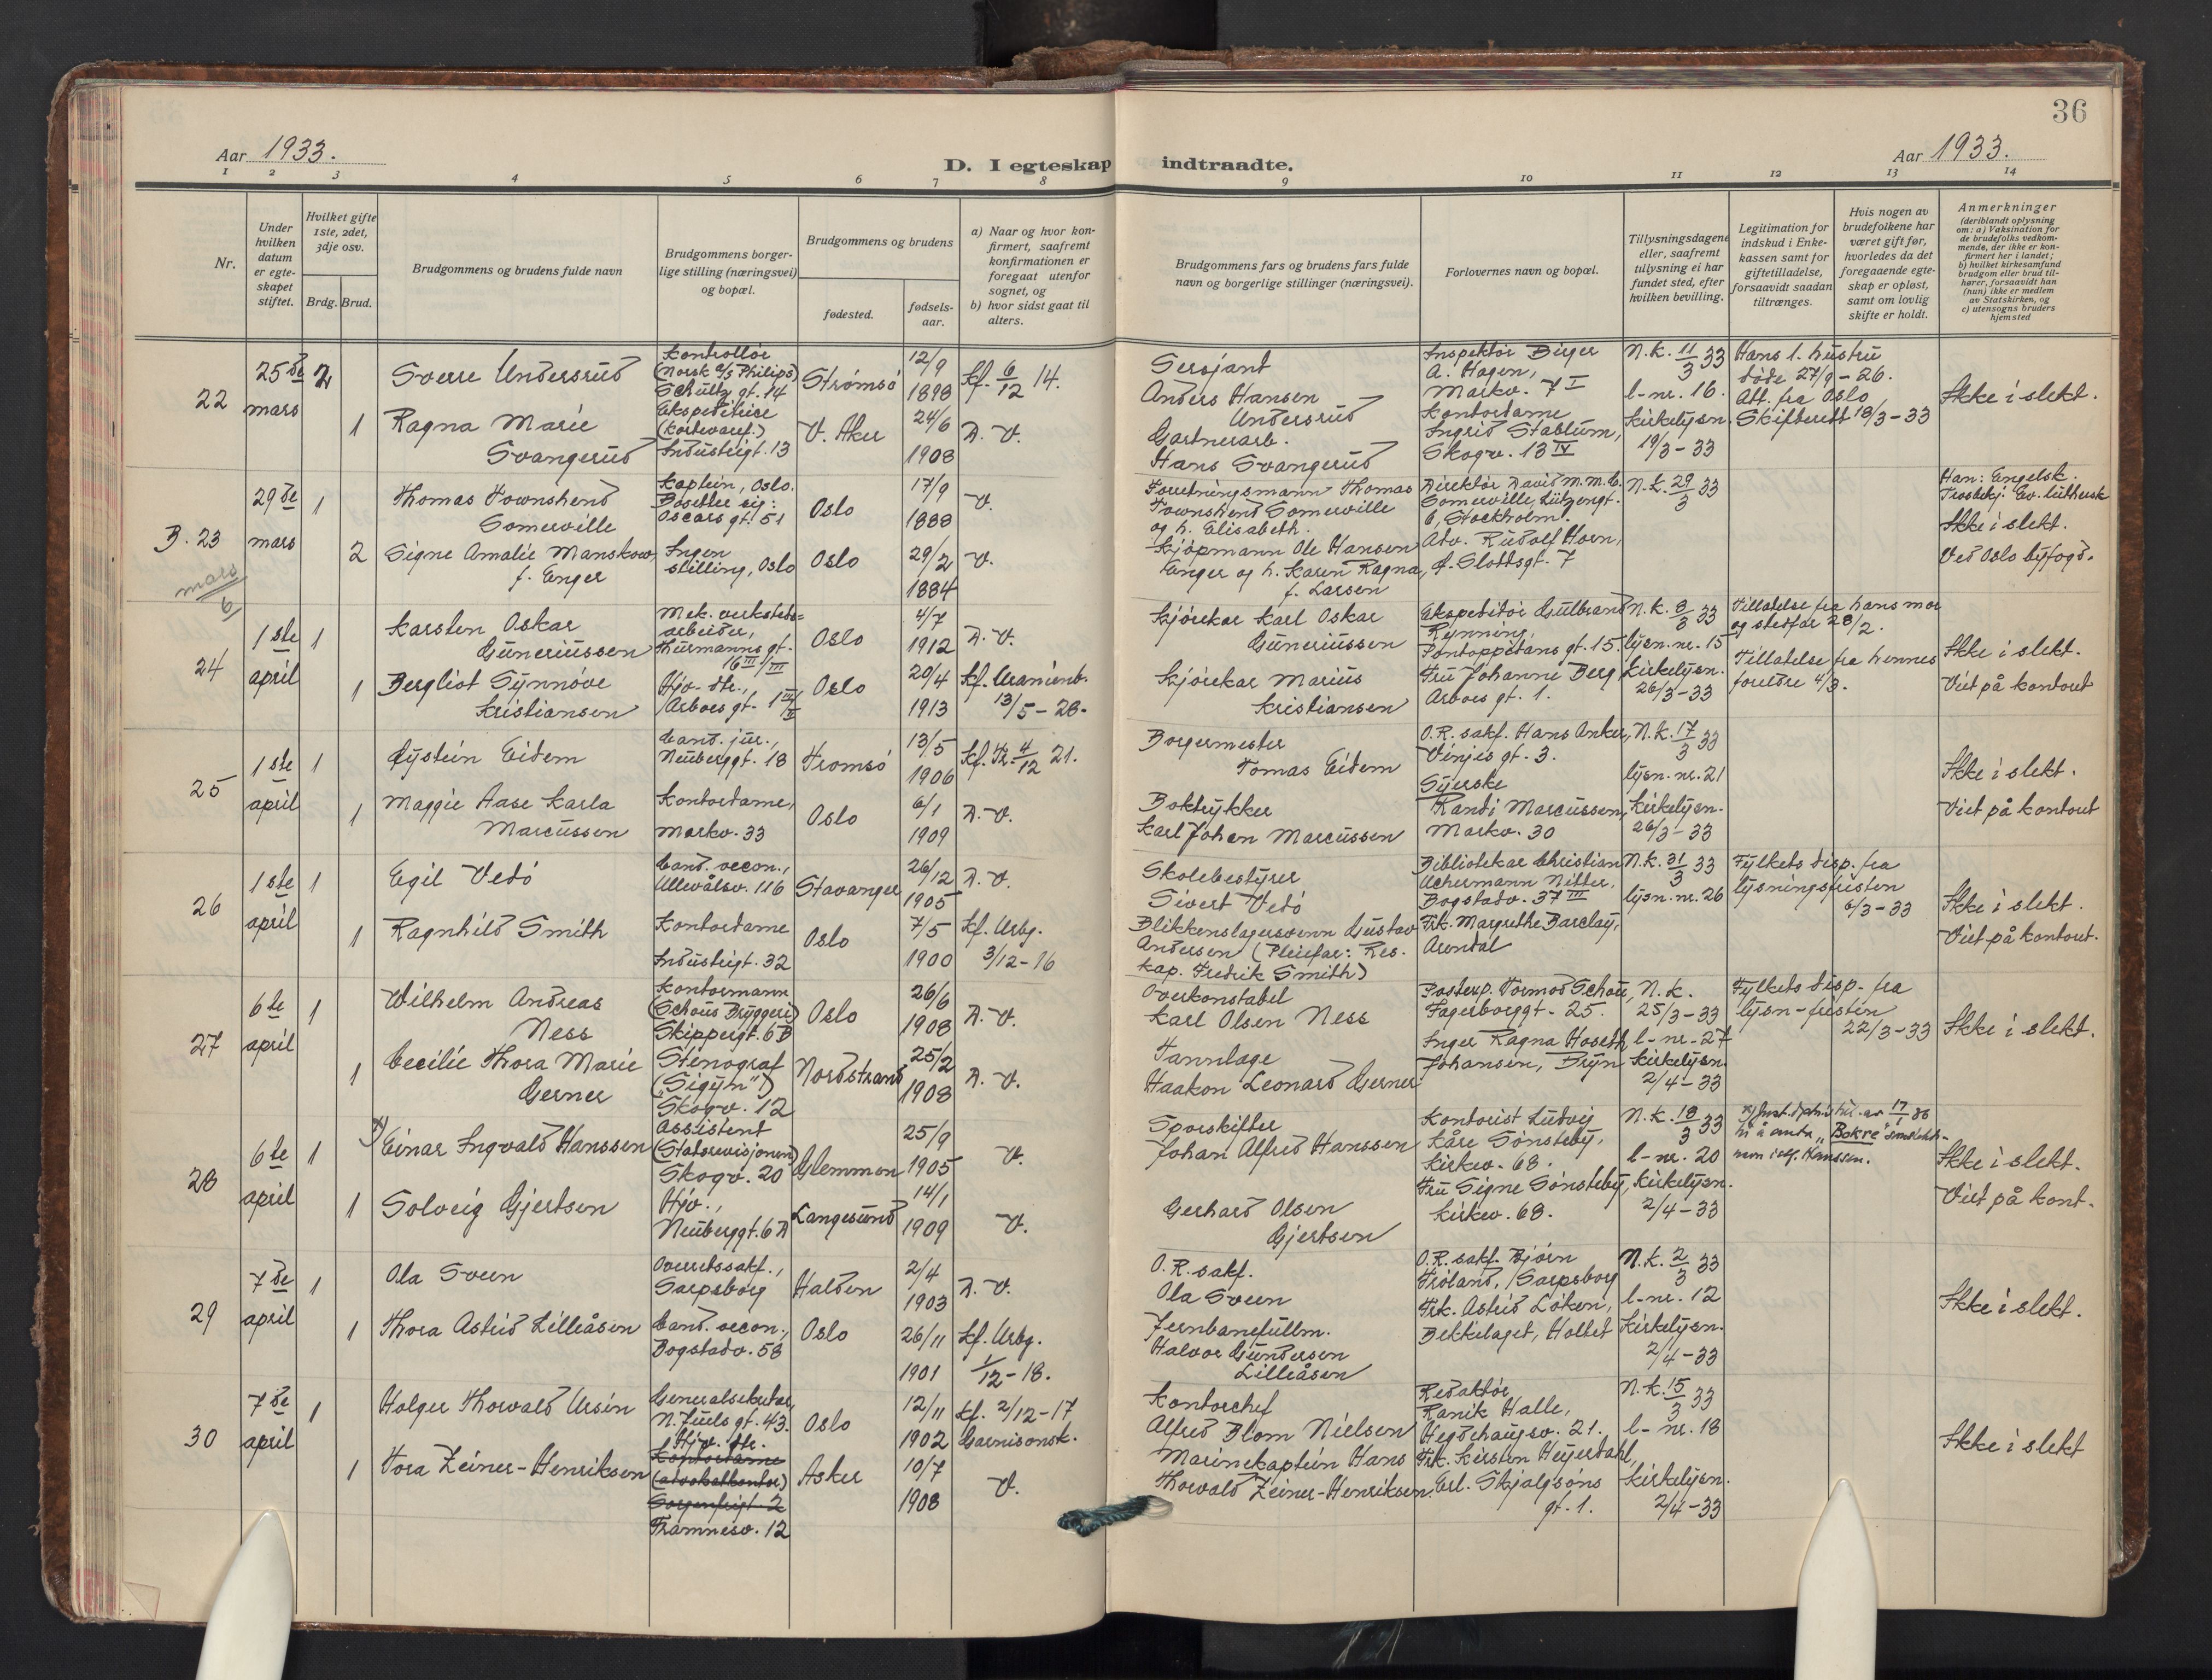 36
Aar 1933.
D. I egteskap indtraadte.
Aar 1933.
1 2 3 4 5 6 7 8 9 10 11 12 13 14
Nr.
Under hvilken datum er egte-skapet stiftet.
Hvilket gifte 1ste, 2det, 3dje osv.
Brdg. Brud.
Brudgommens og brudens fulde navn
Brudgommens borger-lige stilling (næringsvei) og bopæl.
Brudgommens og brudens
fødested.
fødsels-aar.
a) Naar og hvor kon-firmert, saafremt konfirmationen er foregaat utenfor sognet, og
b) hvor sidst gaat til alters.
Brudgommens fars og brudens fars fulde navn og borgerlige stillinger (næringsvei).
Forlovernes navn og bopæl.
Tillysningsdagene eller, saafremt tillysning ei har fundet sted, efter hvilken bevilling.
Legitimation for indskud i Enke-kassen samt for giftetilladelse, forsaavidt saadan tiltrænges.
Hvis nogen av brudefolkene har været gift før, hvorledes da det foregaaende egte-skap er opløst, samt om lovlig skifte er holdt.
Anmerkninger
(deriblandt oplysning om: a) Vaksination for de brudefolks vedkom-mende, der ikke er kon-firmert her i landet;
b) hvilket kirkesamfund brudgom eller brud til-hører, forsaavidt han (hun) ikke er medlem av Statskirken, og
c) utensogns bruders hjemsted
22
25de mars
2
Sverre Undersrud
Kontrollør
(Norsk A/S Philips)
Schultz gt. 14
Strømsø
12/9 1898
Kf. 6/12 14.
Sersjant
Anders Hansen
Undersrud
Inspektør Birger
A. Hagen,
Markv. 7 I
N.k. 11/3 33
l-nr. 16.
Hans 1. hustru
døde 27/9-26.
Att. fra Oslo
Skifterett 18/3-33
Ikke i slekt.
1
Ragna Marie
Svangerud
Ekspeditrice
Industrigt. 13
V. Aker
24/6 1908
D. V.
Gartnerarb.
Hans Svangerud
Kontordame
Ingrid Stablum,
Skogv. 13 IV
Kirkelysn.
19/3-33
B. 23
mars
6
29de mars
1
Thomas Townshend
Somerville
Kaptein, Oslo.
Bosetter sig:
Oscars gt. 51
Oslo
17/9 1888
V.
Forretningsmann Thomas
Townshend Somerville
og h. Elisabeth.
Direktør David M. M. C.
Somerville, Lützengt.
6, Stockholm.
N.k. 29/3 33
Han: Engelsk.
Trosbekj: Ev. luthersk
Ikke i slekt.
Ved Oslo byfogd.
2
Signe Amalie Manskow,
f. Enger
Ingen
stilling, Oslo
Oslo
29/2 1884
V.
Kjøpmann Ole Hansen
Enger og h. Karen Ragna,
f. Larsen
Adv. Rudolf Horn,
d. Slottsgt. 7
24
1ste april
1
Karsten Oskar
Guneriussen
Mek. verksteds=
arbeider,
Thurmanns gt.
Oslo
4/7 1912
D. V.
Kjørekar Karl Oskar
Guneriussen
Ekspeditør Gulbrand
Rynning,
Pontoppidans gt. 15.
N.k. 8/3 33
lysn. nr. 15
Tillatelse fra hans mor
og stedfar 28/2.
Tillatelse fra hennes
foreldre 4/3.
Ikke i slekt.
Viet på kontoret
1
Bergliot Synnøve
Kristiansen
Hjv. dtr.,
Arboes gt. 1
Oslo
20/4 1913
Kf. Uranienb.
13/5-28.
Kjørekar Marius
Kristiansen
Fru Johanne Berg
Arboes gt. 1.
Kirkelysn.
26/3-33
25
1ste april
1
Øystein Eidem
Cand. jur.,
Neuberggt. 18
Tromsø
13/5 1906
Kf. Tr. 4/12 21.
Borgermester
Tomas Eidem
O.R. sakf. Hans Anker,
Vinjes gt. 3.
N.k. 17/3 33
lysn. nr. 21
Ikke i slekt.
Viet på kontoret
1
Maggie Aase Karla
Marcussen
Kontordame,
Markv. 33
Oslo
6/1 1909
D. V.
Boktrykker
Karl Johan Marcussen
Syerske
Randi Marcussen,
Markv. 30
Kirkelysn.
26/3-33
26
1ste april
1
Egil Vedø
Cand. oecon.,
Ullevålsv. 116
Stavanger
26/12 1905
D. V.
Skolebestyrer
Sivert Vedø
Bibliotekar Christian
Achermann Nitter,
Bogstadv. 37 III
N.k. 31/3 33
lysn. nr. 26
Fylkets disp. fra
lysningsfristen
6/3-33
Ikke i slekt.
Viet på kontoret.
1
Ragnhild Smith
Kontordame
Industrigt. 32
Oslo
7/5 1900
Kf. Urbg.
3/12-16
Blikkenslagersvenn Gustav
Andersen (Pleiefar: Res.
kap. Fredrik Smith)
Frk. Margrethe Barclay,
Arendal
27
6te april
1
Wilhelm Andreas
Ness
Kontormann
(Schous Bryggeri)
Skippergt. 6B
Oslo
26/6 1908
D. V.
Overkonstabel
Karl Olsen Ness
Postexp. Tormod Schou,
Fagerborggt. 25.
N.k.
25/3-33
l-nr. 27
Fylkets disp. fra
lysn-fristen
22/3-33
Ikke i slekt.
1
Cecilie Thora Marie
Gerner
Stenograf
("Sigyn")
Skogv. 12
Nordstrand
25/2 1908
D. V.
Tannlæge
Haakon Leonard Gerner
Inger Ragna Hoseth
Johansen, Bryn
Kirkelysn.
2/4-33
28
6te april
1
x) Einar Ingvald Hanssen
Assistent
(Statsrevisjonen)
Skogv. 20
Glemmen
25/9 1905
V.
Sporskifter
Johan Alfred Hanssen
Kontorist Ludvig
Kåre Sønsteby,
Kirkev. 68.
N.k. 18/3 33
l-nr. 20
"Bokre"
Hanssen.
Ikke i slekt.
Viet på kont.
1
Solveig Gjertsen
Hjv.,
Neuberggt. 6 D
Langesund
14/1 1909
V.
Gerhard Olsen
Gjertsen
Fru Signe Sønsteby,
Kirkev. 68.
Kirkelysn.
2/4-33
29
7de april
1
Ola Sveen
Overrettssakf.,
Sarpsborg
Halden
2/4 1903
D. V.
O.R. sakf.
Ola Sveen
O.R. sakf. Bjørn
Frøland, Sarpsborg
N.k. 2/3 33
l-nr. 12
Ikke i slekt.
1
Thora Astrid Lilleåsen
Cand. oecon.,
Bogstadv. 58
Oslo
26/11 1901
Kf. Urbg.
1/12-18.
Jernbanefullm.
Halvor Gundersen
Lilleåsen
Frk. Astrid Løken,
Bekkelaget, Holtet
Kirkelysn.
2/4-33
30
7de april
1
Holger Thorvald Ursin
Generalsekretær,
N. Juels gt. 43.
Oslo
12/11 1902
Kf. 2/12-17
Garnisonsk.
Kontorchef
Alfred Blom Nielsen
Redaktør
Ranik Halle,
Hegdehaugsv. 21.
N.k. 15/3 33
l-nr. 18
Ikke i slekt
1
Tora Zeiner-Henriksen
Hjv. dtr.
Kontordame
(advokatkontor)
Sorgenfrigt. 2
Framnesv. 12
Asker
10/7 1908
V.
Marinekaptein Hans
Thorvald Zeiner-Henriksen.
Frk. Kirsten Heyerdahl,
Erl. Skjalgsøns
gt. 1.
Kirkelysn.
2/4-33